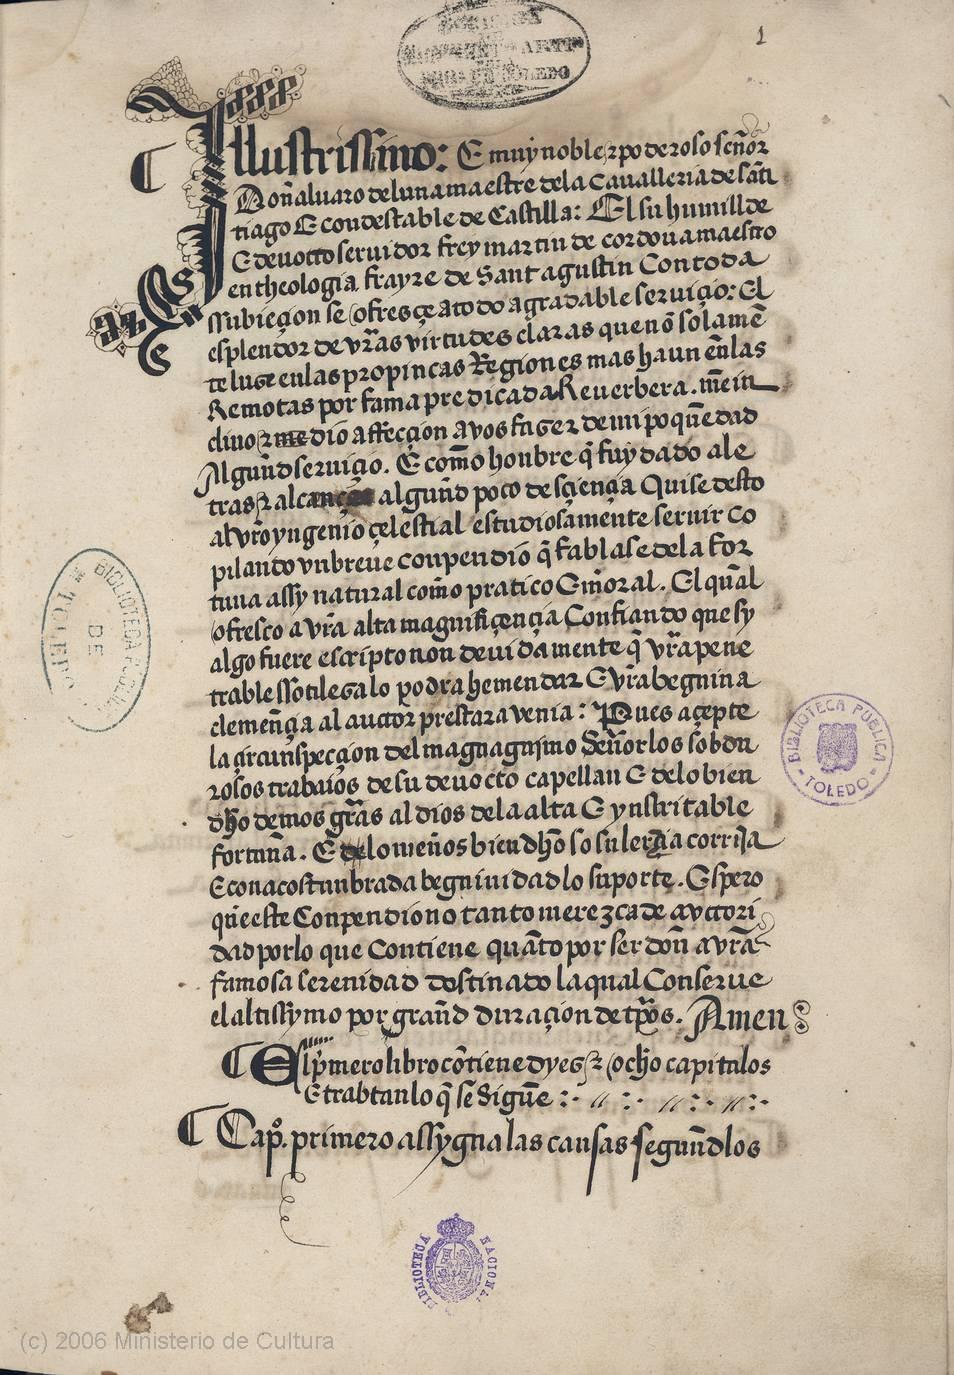 1
BIBLIOTECA
Illustrissimo: E muy noble ꝛ poderoso señor
Don aluaro de luna maestre de la Caualleria de sãti
tiago E condestable de Castilla: El su humillde
E deuocto seruidor frey martin de cordoua maestro
en theologia frayre de Sant agustin Con toda
ssubieçon se ofresçe a todo agradable seruiçio: El
esplendor de vr̃as virtudes claras que nõ solamẽ
te luze en las propincas Regiones mas haun ẽn las
Remotas por fama predicada Reuerbera. mẽ in
clino ꝛ me dio affecçion a vos fazer de mi poquẽdad
Algund̃ seruiçio. E com̃o honbre q̃ fuy dado a le
tras ꝛ alcançe algund̃ poco de sçiença Quise desto
al vr̃o yngenio çelestial estudiosamente seruir Co
pilando vn breue conpendio q̃ fablase de la for
tuna assy natural com̃o pratico E m̃oral. El qual̃
ofresco a vr̃a alta magnifiçençia Confiando que sy
algo fuere escripto non deuidamente q̃ vr̃a pene
trable ssotileza lo podra hemendar E vr̃a begnina
clemen̄çia al auctor prestara venia: Pues açepte
la çircunspecçion del magnagnimo Señor los sobdu
rosos trabaios de su deuocto capellan E de lo bien
dh̃o demos gr̃as al dios de la alta E ynstritable
fortuna. E de lo meños bien dh̃o so su lerçia corrija
E con acostunbrada begniuidad lo suporte. Espero
que este Conpendio no tanto merezca de auctori
dad por lo que Contiene quãto por ser don̄ a vr̃a
famosa serenidad destinado la qual Conserue
el altissymo por grand̃ duraçion de tp̃os. Amen
El p̃mero libro cõtiene dyes ꝛ ocho capitulos
E trabtan lo q̃ se sigue :· // :· // :· // :·
Cap̊. primero assygna las causas segund̃ los
BIBLIOTECA PUBLICA
DE
TOLEDO
BIBLIOTECA PUBLICA
TOLEDO
BIBLIOTECA NACIONAL
(c) 2006 Ministerio de Cultura